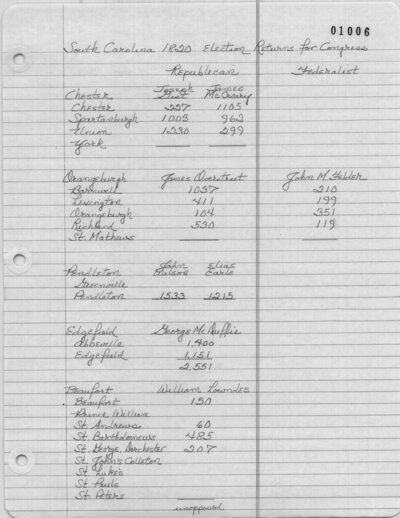 01006
South Carolina 1820 Election Returns for Congress
Republican Federalist
Chester Joseph Gist James McCreary
Chester 227 1105
Spartanburgh 1003 962
Union 1230 299
York
Orangeburgh James Overstreet John M. Felder
Barnwell 1037 210
Lexington 411 199
Orangeburgh 104 351
Richland 530 119
St. Mathews
Pendleton John Wilson Elias Earle
Greenville
Pendleton 1533 1215
Edgefield George McDuffie
Abbeville 1,400
Edgefield 1,151
2,551
Beaufort William Lowndes
Beaufort 150
Prince William
St. Andrews 60
St. Bartholomews 485
St. George, Dorchester 207
St. John's Colleton
St. Luke's
St. Pauls
St. Peters
unopposed